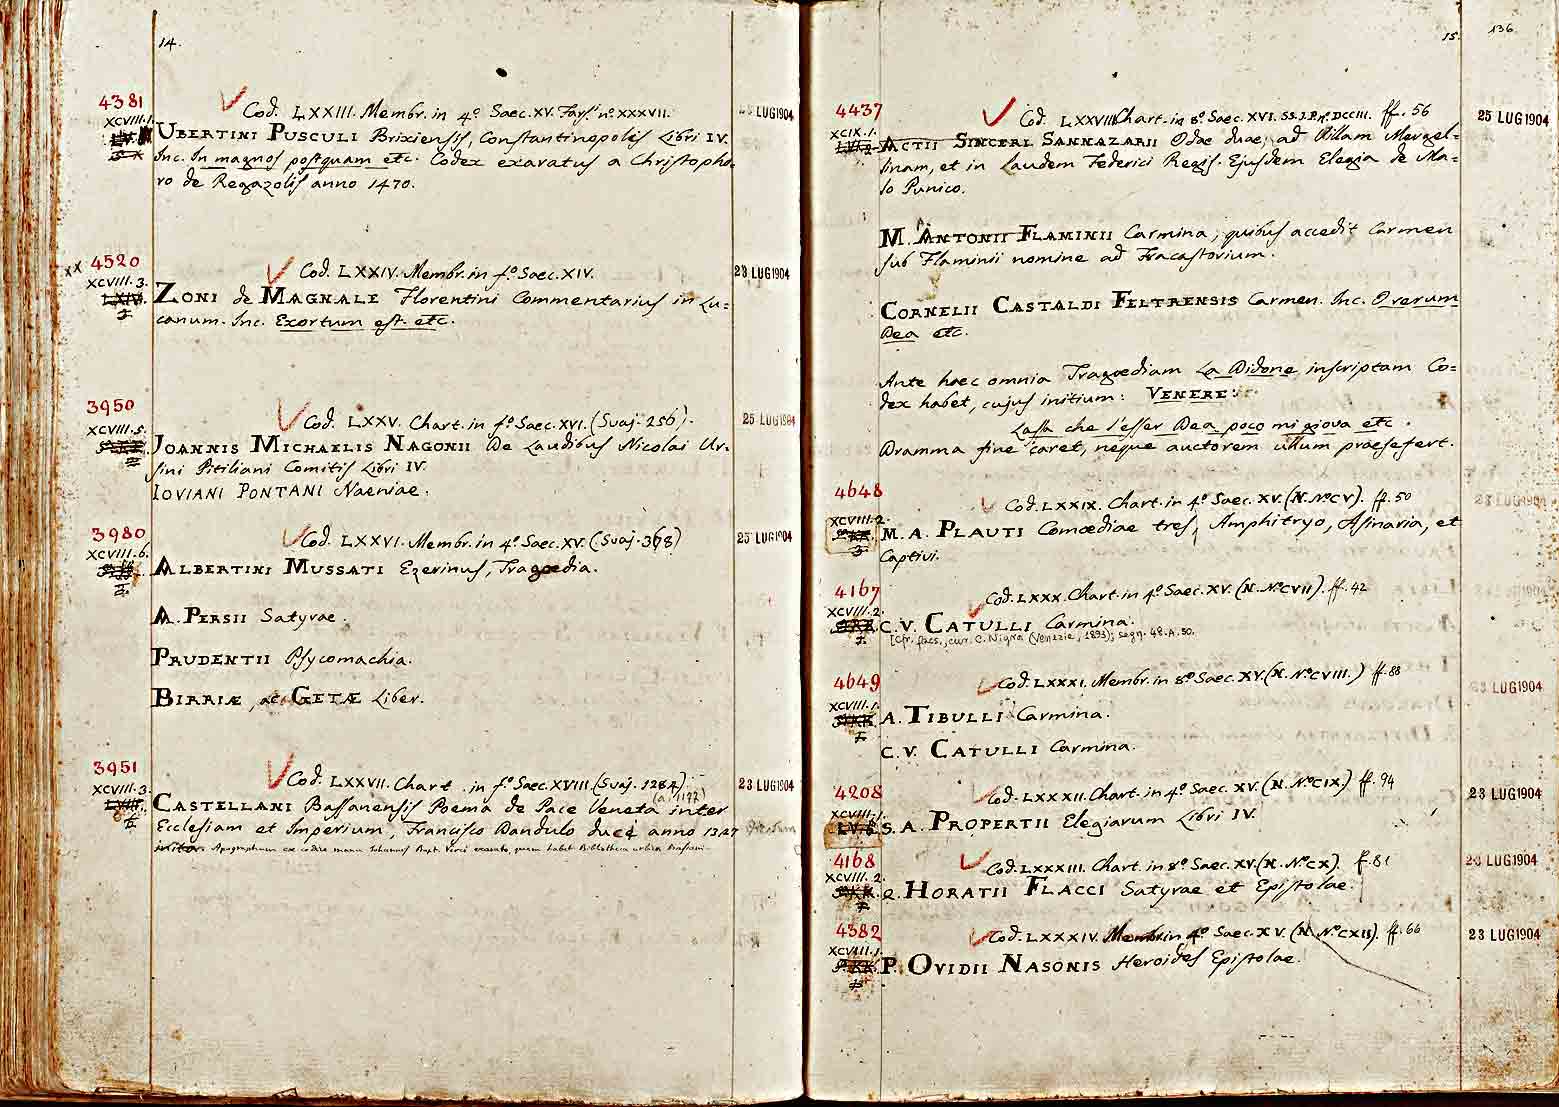 14.
4381
Cod. LXXIII. Membr. in 4º. Saec. XV. Fars. nº. XXXVII.
LUG 1904
XCVIII.1.
UBERTINI PUSCULI Brixiensis, Constantinopolis Libri IV.
Inc. In magnos postquam etc. Codex exaratus a Christopho-
ro de Regazolis anno 1470.
xx 4520
Cod. LXXIV. Membr. in fº. Saec. XIV.
23 LUG 1904
XCVIII.3.
LXIV.
ZONI de MAGNALE Florentini Commentarius in Lu=
canum. Inc. Exortum est. etc.
3950
Cod. LXXV. Chart. in fº. Saec. XVI. (Suaj. 256).
25 LUG 1904
XCVIII.5.
JOANNIS MICHAELIS NAGONII De Laudibus Nicolai Ur=
sini Pitiliani Comitis Libri IV.
IOVIANI PONTANI Naeniae.
3980
Cod. LXXVI. Membr. in 4º. Saec. XV. (Suaj. 368)
25 LUG 1904
XCVIII.6.
ALBERTINI MUSSATI Ezerinus, Tragoedia.
A. PERSII Satyrae.
PRUDENTII Psycomachia.
BIRRIÆ, ac GETÆ Liber.
3951
Cod. LXXVII. Chart. in fº. Saec. XVIII. (Suaj. 1284)
23 LUG 1904
XCVIII.3.
CASTELLANI Bassanensis Poema de Pace Veneta inter
(a. 1177)
Ecclesiam et Imperium, Francisco Dandulo duce anno 1327
Apographum ex codice manu Johannis Bapt. Verci exarato, quem habet Bibliotheca urbis Bassani.
15.
136
4437
Cod. LXXVIII Chart. in 8º. Saec. XVI. SS.J.P. nº. DCCIII. ff. 56
25 LUG 1904
XCIX.1.
ACTII SINCERI SANNAZARII Odae duae; ad Villam Mergel=
linam, et in Laudem Federici Regis. Ejusdem Elegia de Ma=
lo Punico.
M. ANTONII FLAMINII Carmina; quibus accedit Carmen
sub Flaminii nomine ad Fracastorium.
CORNELII CASTALDI FELTRENSIS Carmen. Inc. O rerum
Dea etc.
Ante haec omnia Tragoediam La Didone inscriptam Co=
dex habet, cujus initium: VENERE:
Lassa che l'esser Dea poco mi giova etc.
Dramma fine caret, neque auctorem ullum praesefert.
4648
Cod. LXXIX. Chart. in 4º. Saec. XV. (N. Nº. CV). ff. 50
XCVIII.2.
M. A. PLAUTI Comoediae tres, Amphitryo, Asinaria, et
Captivi.
4167
Cod. LXXX. Chart. in 4º. Saec. XV. (N. Nº. CVII). ff. 42
XCVIII.2.
C. V. CATULLI Carmina.
[Cfr. facs., cur. C. Nigra (Venezia, 1893); segn. 48.A.50.
4649
Cod. LXXXI. Membr. in 8º. Saec. XV. (N. Nº. CVIII.) ff. 88
23 LUG 1904
XCVIII.1.
A. TIBULLI Carmina.
C. V. CATULLI Carmina.
4208
Cod. LXXXII. Chart. in 4º. Saec. XV. (N. Nº. CIX) ff. 94
23 LUG 1904
XCVIII.1.
S. A. PROPERTII Elegiarum Libri IV.
4168
Cod. LXXXIII. Chart. in 8º. Saec. XV. (N. Nº. CX). ff. 81
23 LUG 1904
XCVIII.2.
Q. HORATII FLACCI Satyrae et Epistolae.
4382
Cod. LXXXIV. Membr. in 4º. Saec. XV. (N. Nº. CXII). ff. 66
23 LUG 1904
XCVIII.1.
P. OVIDII NASONIS Heroides Epistolae.